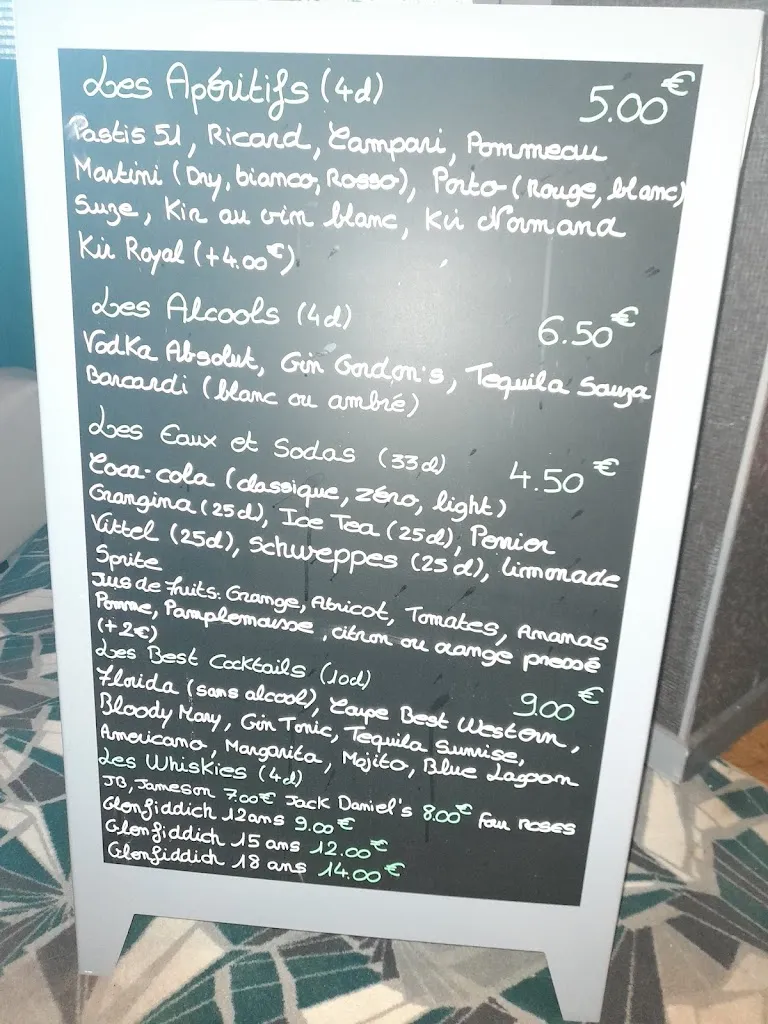 Les Apéritifs (4d) 5.00€
Pastis 51, Ricard, Campari, Pommeau
Martini (Dry, bianco, Rosso), Porto (rouge, blanc)
Suze, Kir au vin blanc, Kir Normand
Kir Royal (+4.00€)
Les Alcools (4d) 6.50€
Vodka Absolut, Gin Gordon's, Tequila Sauza
Barcardi (blanc ou ambré)
Les Eaux et Sodas (33d) 4.50€
Coca-cola (classique, zéro, light)
Orangina (25d), Ice Tea (25d), Perrier
Vittel (25d), Schweppes (25d), limonade
Sprite
Jus de fruits: Orange, Abricot, Tomates, Ananas
Pomme, Pamplemousse, citron ou orange pressé
(+2€)
Les Best Cocktails (10d) 9.00€
Florida (sans alcool), Coupe Best Western,
Bloody Mary, Gin Tonic, Tequila Sunrise,
Americano, Margarita, Mojito, Blue Lagoon
Les Whiskies (4d)
JB, Jameson 7.00€ Jack Daniel's 8.00€ Four ROSES
Glenfiddich 12 ans 9.00€
Glenfiddich 15 ans 12.00€
Glenfiddich 18 ans 14.00€